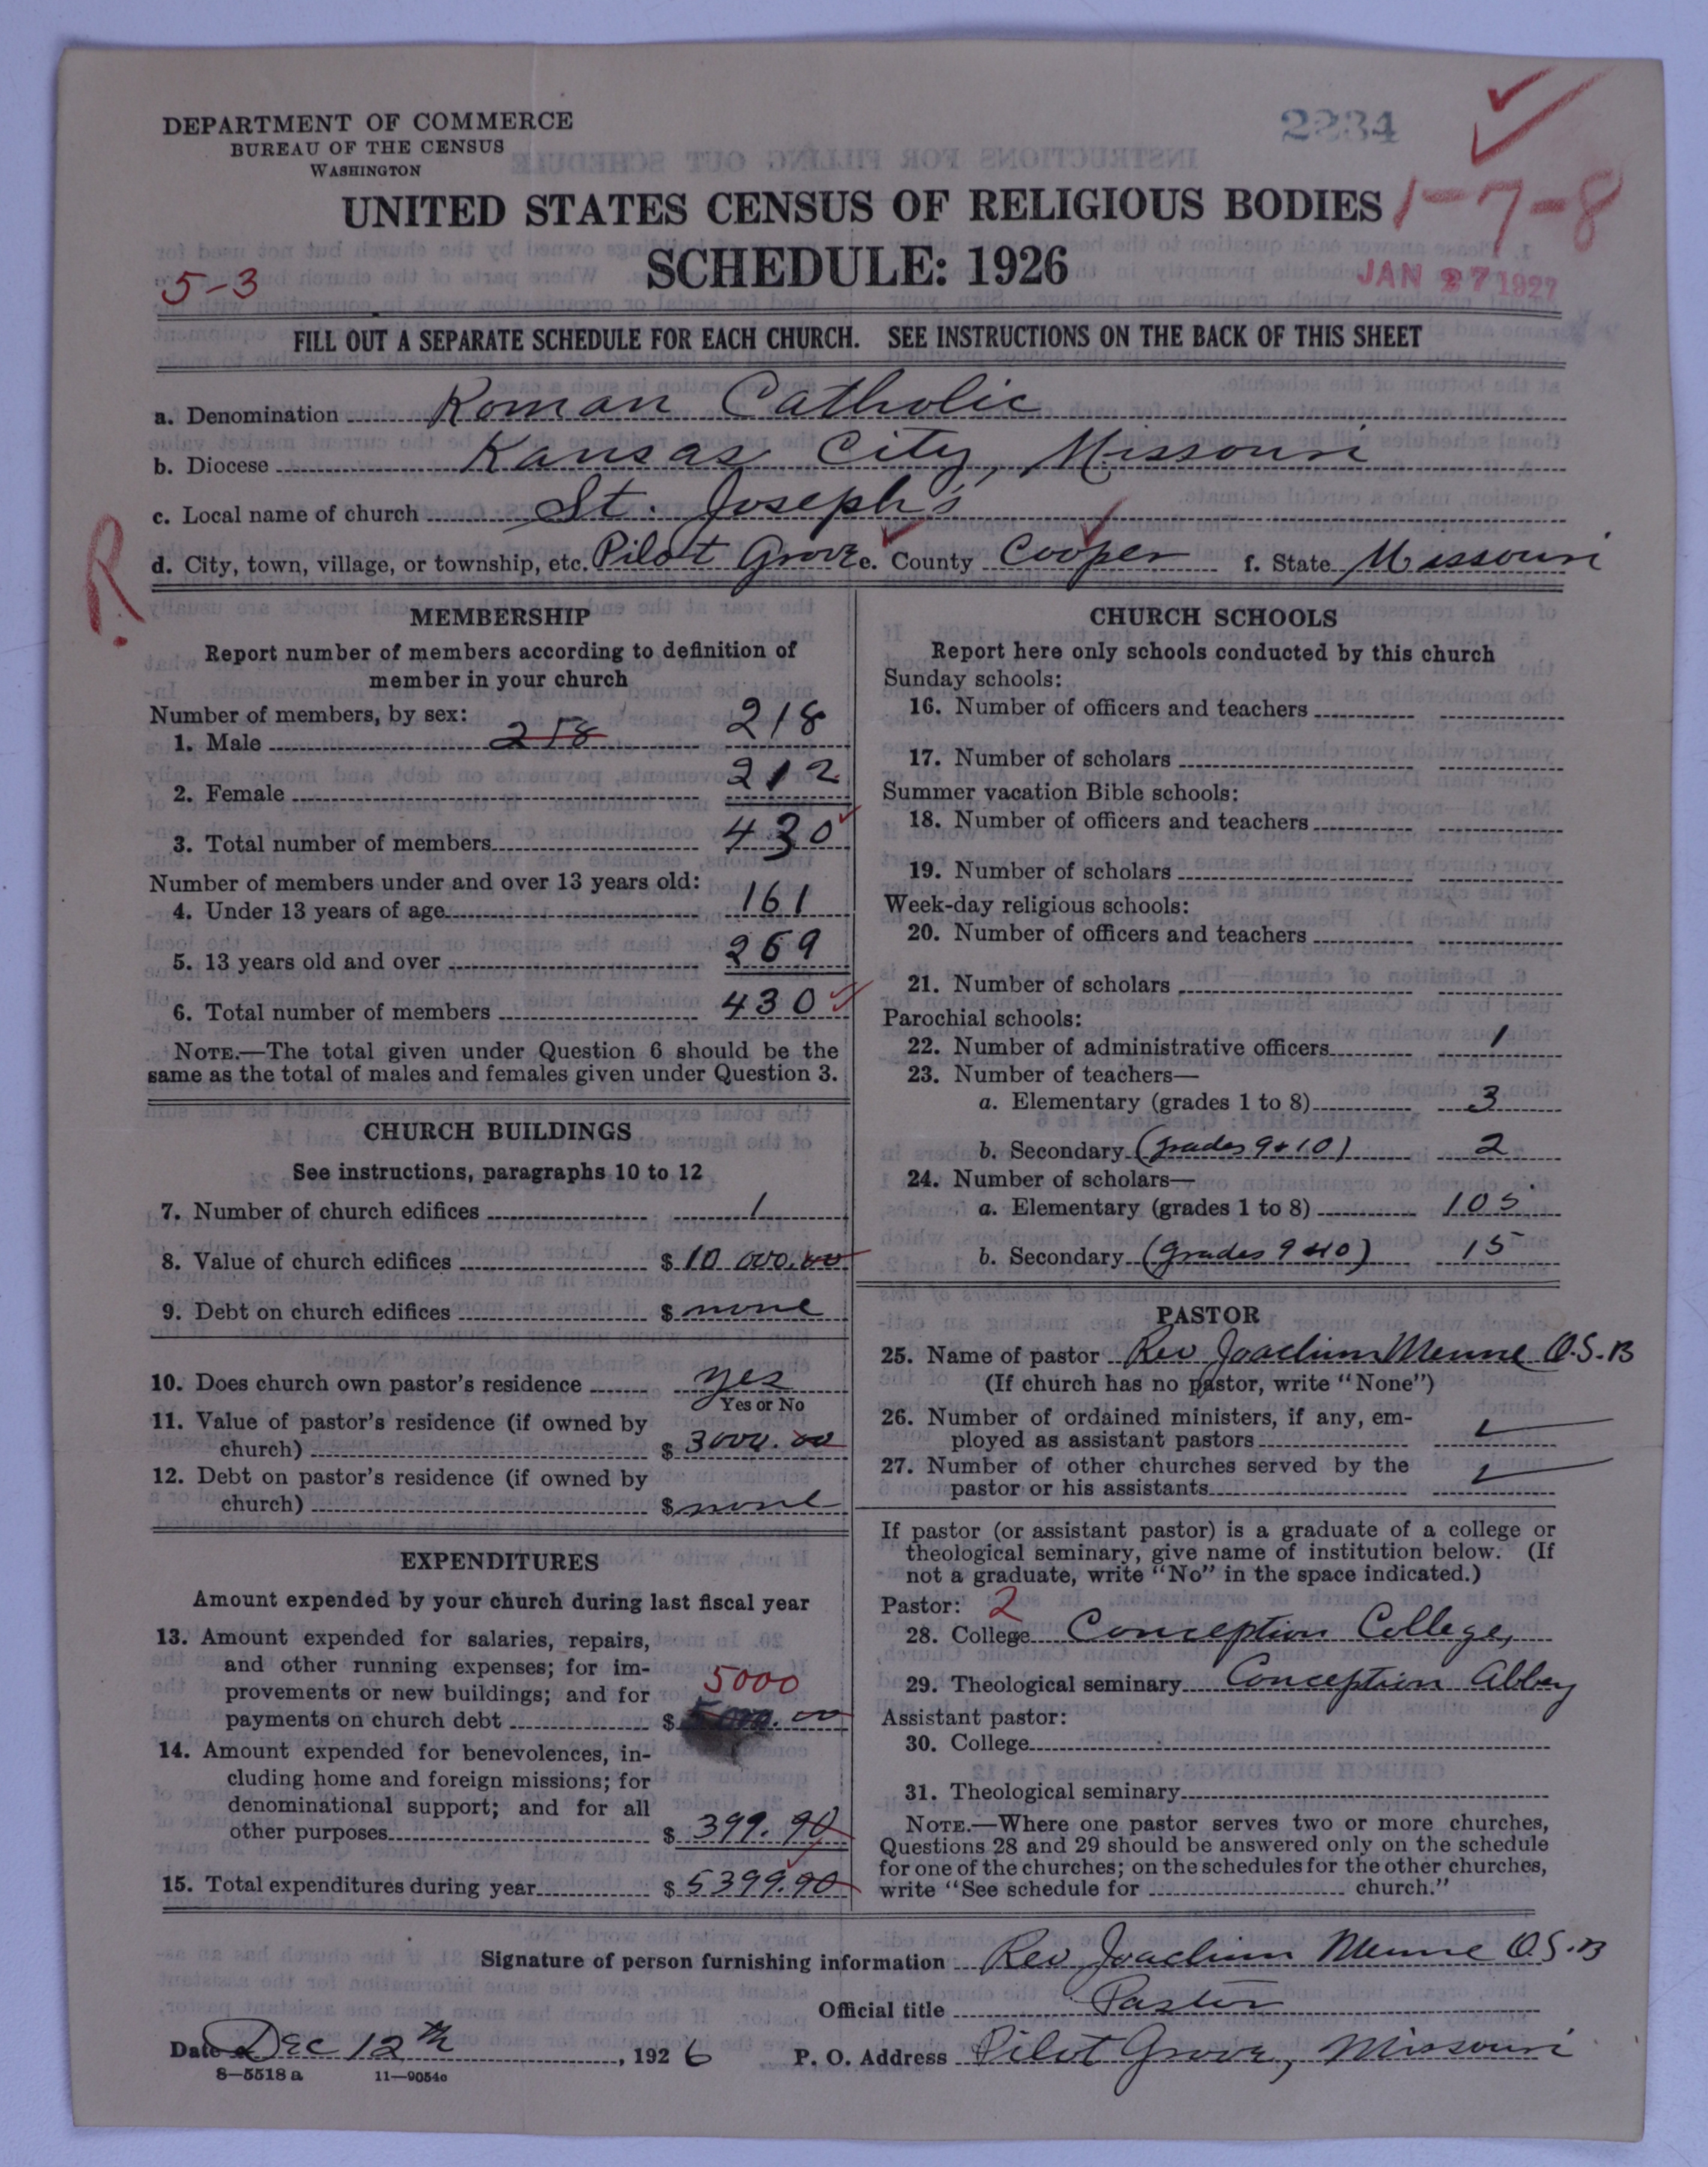 DEPARTMENT OF COMMERCE
BUREAU OF THE CENSUS
WASHINGTON
2234
UNITED STATES CENSUS OF RELIGIOUS BODIES
1-7-8
SCHEDULE: 1926
5-3
JAN 27 1927
FILL OUT A SEPARATE SCHEDULE FOR EACH CHURCH. SEE INSTRUCTIONS ON THE BACK OF THIS SHEET
a. Denomination Roman Catholic
b. Diocese Kansas City, Missouri
c. Local name of church St. Joseph's
R.
d. City, town, village, or township, etc. Pilot Grove e. County Cooper f. State Missouri
MEMBERSHIP
Report number of members according to definition of
member in your church
Number of members, by sex:
1. Male 218 218
2. Female 212
3. Total number of members 430
Number of members under and over 13 years old:
4. Under 13 years of age 161
5. 13 years old and over 269
6. Total number of members 430
NOTE.—The total given under Question 6 should be the
same as the total of males and females given under Question 3.
CHURCH BUILDINGS
See instructions, paragraphs 10 to 12
7. Number of church edifices 1
8. Value of church edifices $ 10 000.00
9. Debt on church edifices $ none
10. Does church own pastor's residence yes
Yes or No
11. Value of pastor's residence (if owned by
church) $ 3000.00
12. Debt on pastor's residence (if owned by
church) $ none
EXPENDITURES
Amount expended by your church during last fiscal year
13. Amount expended for salaries, repairs,
and other running expenses; for im-
provements or new buildings; and for
5000
payments on church debt $ 5000.00
14. Amount expended for benevolences, in-
cluding home and foreign missions; for
denominational support; and for all
other purposes $ 399.90
15. Total expenditures during year $ 5399.90
CHURCH SCHOOLS
Report here only schools conducted by this church
Sunday schools:
16. Number of officers and teachers
17. Number of scholars
Summer vacation Bible schools:
18. Number of officers and teachers
19. Number of scholars
Week-day religious schools:
20. Number of officers and teachers
21. Number of scholars
Parochial schools:
22. Number of administrative officers 1
23. Number of teachers—
a. Elementary (grades 1 to 8) 3
b. Secondary (grades 9 & 10) 2
24. Number of scholars—
a. Elementary (grades 1 to 8) 105
b. Secondary (grades 9 & 10) 15
PASTOR
25. Name of pastor Rev Joachim Menne O.S.B
(If church has no pastor, write "None")
26. Number of ordained ministers, if any, em-
ployed as assistant pastors
27. Number of other churches served by the
pastor or his assistants
If pastor (or assistant pastor) is a graduate of a college or
theological seminary, give name of institution below. (If
not a graduate, write "No" in the space indicated.)
Pastor: 2
28. College Conception College,
29. Theological seminary Conception Abbey
Assistant pastor:
30. College
31. Theological seminary
NOTE.—Where one pastor serves two or more churches,
Questions 28 and 29 should be answered only on the schedule
for one of the churches; on the schedules for the other churches,
write "See schedule for church."
Signature of person furnishing information Rev Joachim Menne O.S.B
Official title Pastor
Date Dec 12th, 1926 P. O. Address Pilot Grove, Missouri
8—5518 a 11—9054o